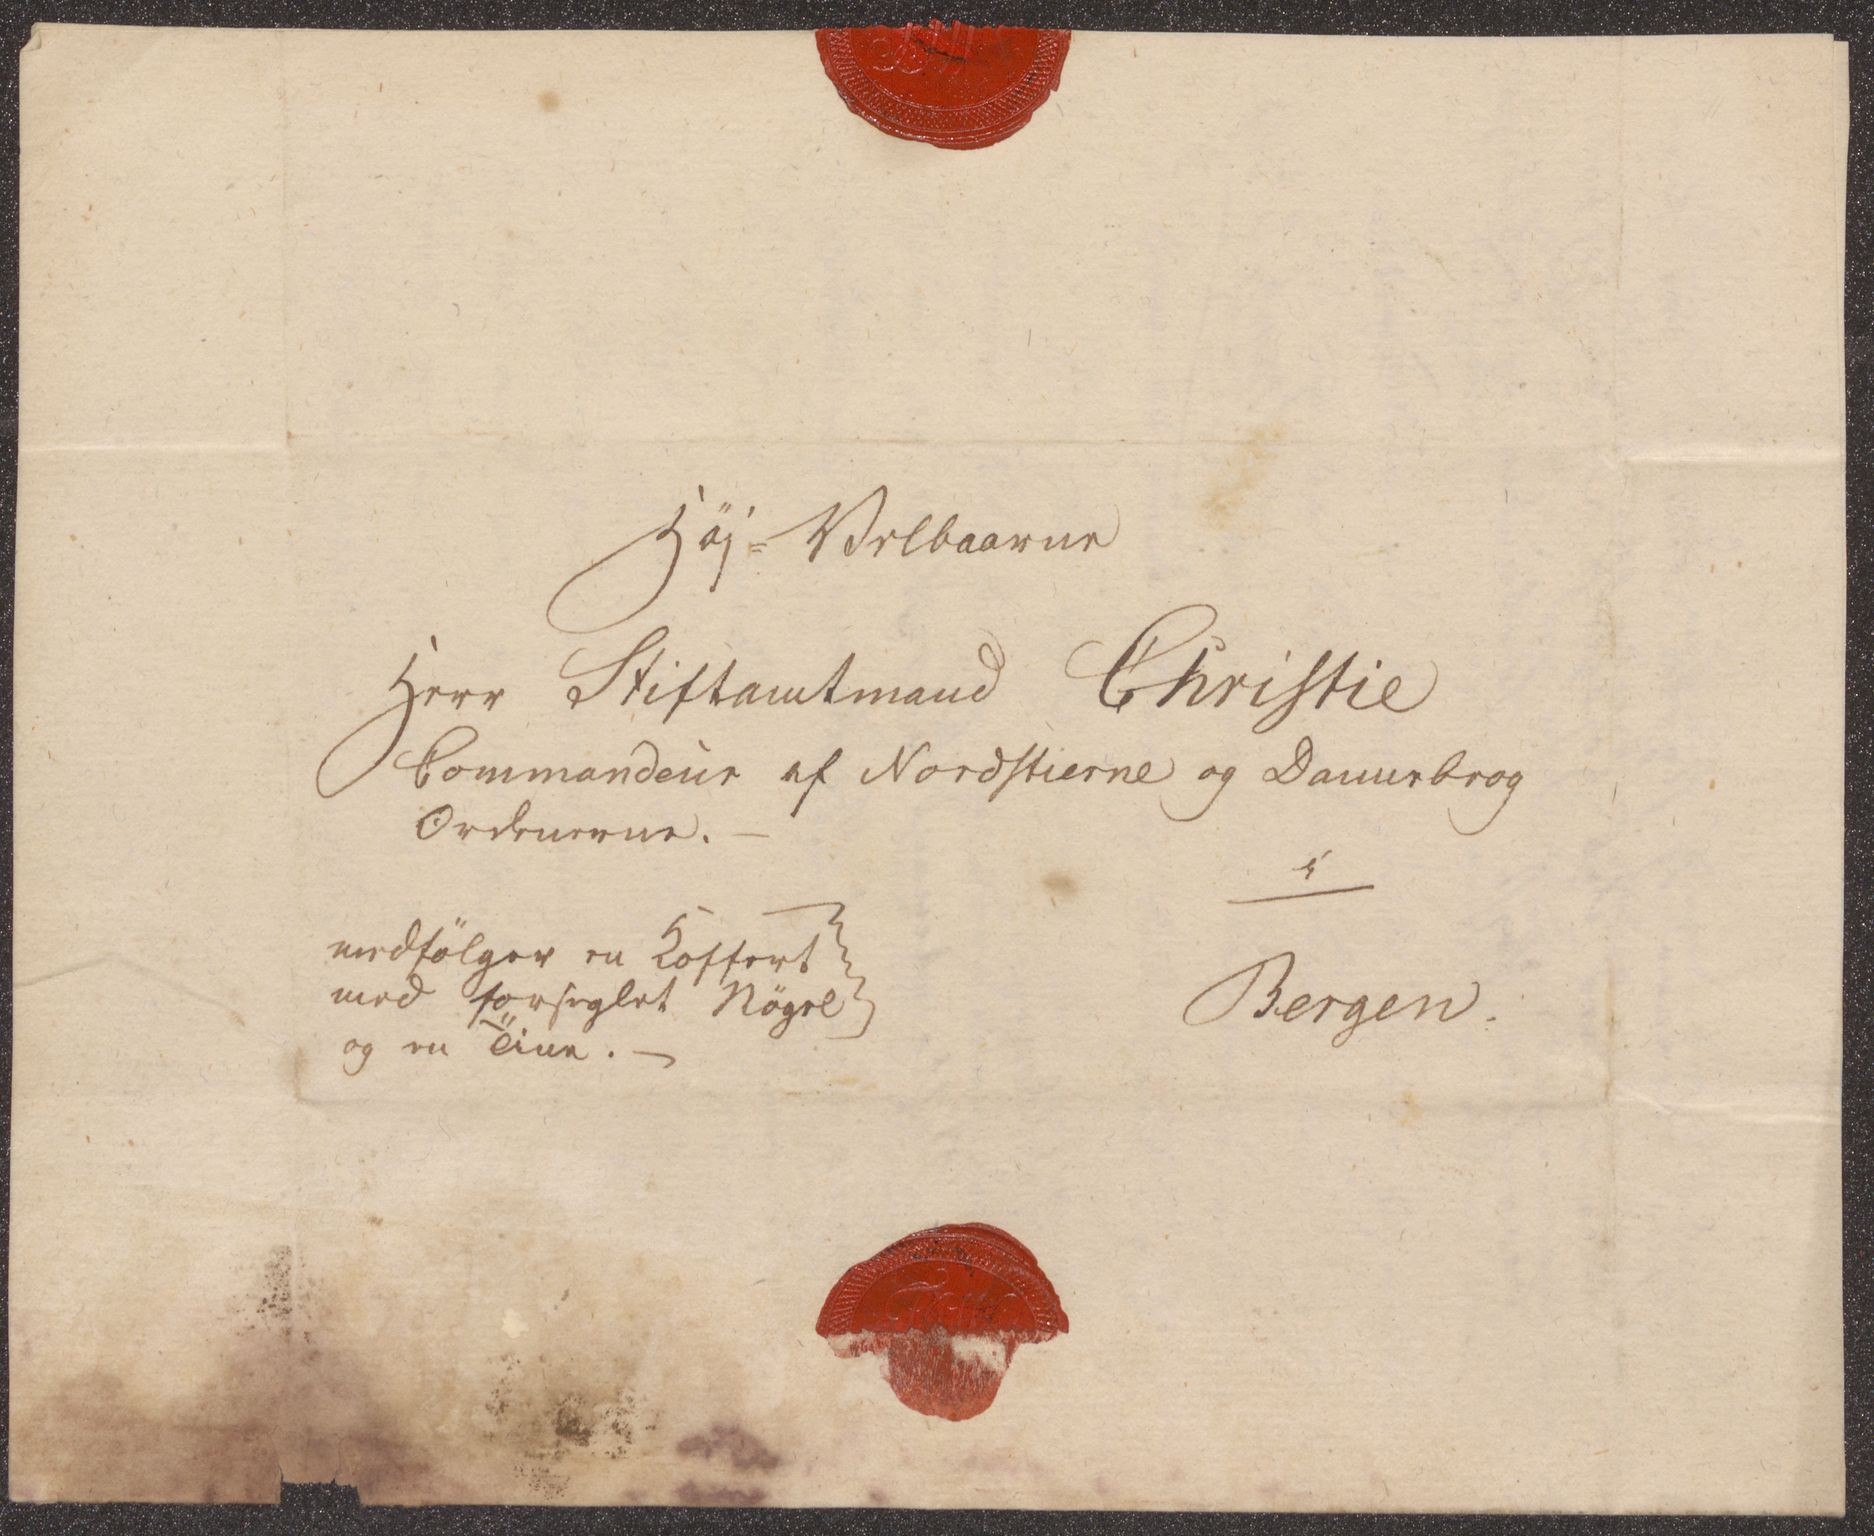 Höj-Velbaarne
Herr Stiftamtmand Christie
Commandeur af Nordstierne og Dannebrog
Ordenerne. —
i
Bergen.
medfölger en Koffert
med forseglet Nögel
og en Tine. —